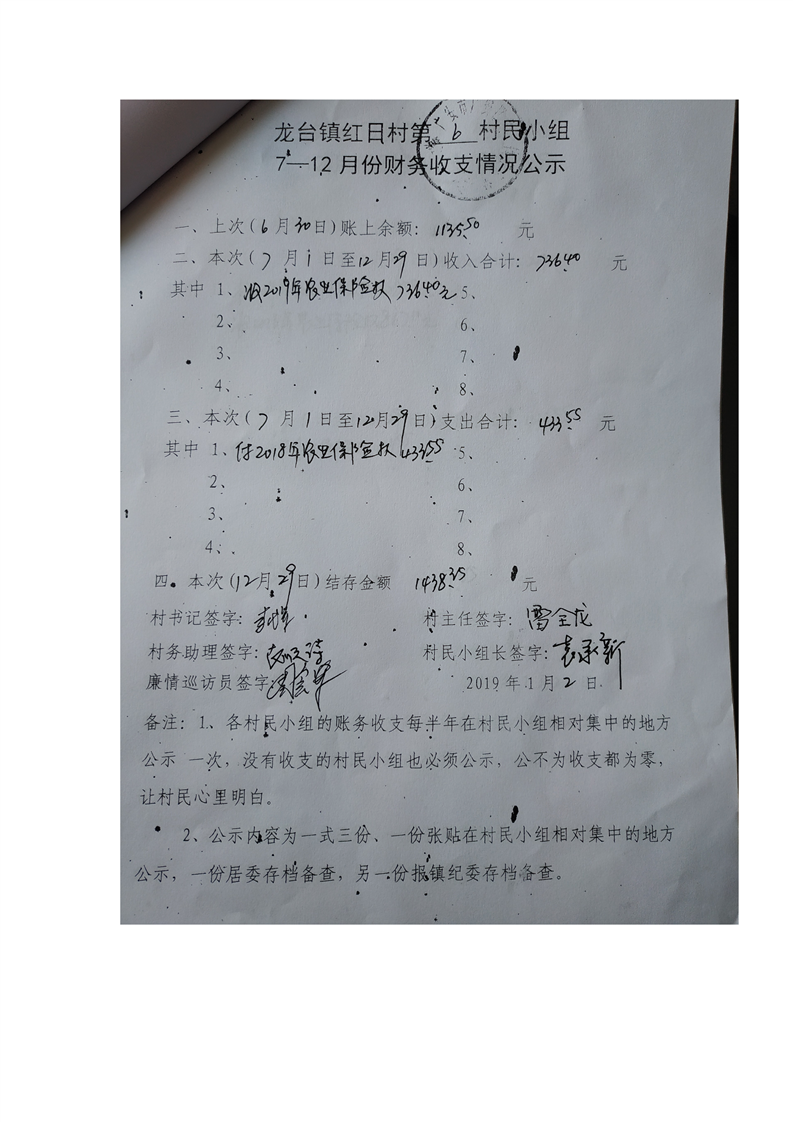 龙台镇红日村第 6 村民小组
7—12月份财务收支情况公示
一、上次(6月30日)账上余额: 1135.50 元
二、本次(7月1日至12月29日)收入合计: 736.40 元
其中 1、收2019年农业保险款736.40元 5、
2、 6、
3、 7、
4、 8、
三、本次(7月1日至12月29日)支出合计: 433.55 元
其中 1、付2018年农业保险款433.55 5、
2、 6、
3、 7、
4、 8、
四、本次(12月29日)结存金额 1438.35 元
村书记签字: 村主任签字:雷全龙
村务助理签字: 村民小组长签字:袁承新
廉情巡访员签字
2019年1月2日
备注:1、各村民小组的账务收支每半年在村民小组相对集中的地方
公示 一次,没有收支的村民小组也必须公示,公不为收支都为零,
让村民心里明白。
2、公示内容为一式三份、一份张贴在村民小组相对集中的地方
公示,一份居委存档备查,另一份报镇纪委存档备查。